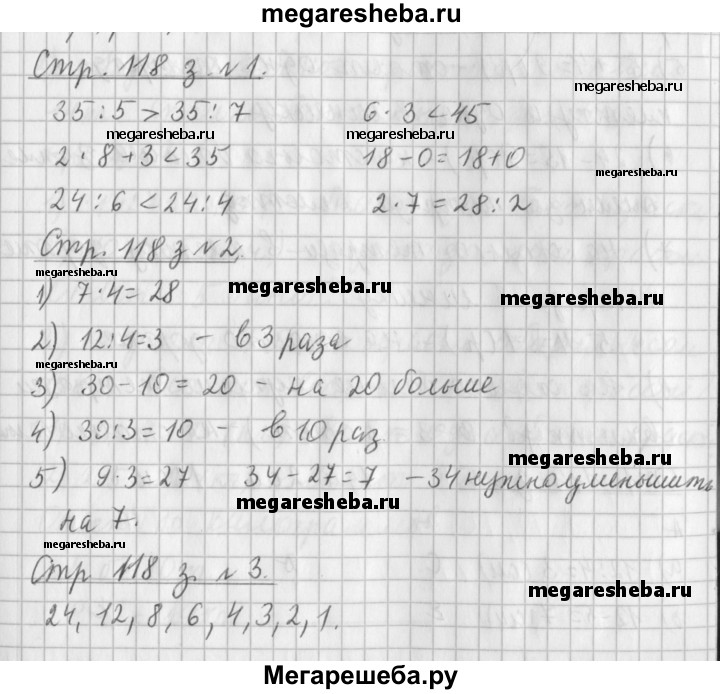 megaresheba.ru
Стр. 118 з. №1.
megaresheba.ru
35 : 5 > 35 : 7 6 · 3 < 45
megaresheba.ru megaresheba.ru
2 · 8 + 3 < 35 18 - 0 = 18 + 0
megaresheba.ru
24 : 6 < 24 : 4 2 · 7 = 28 : 2
Стр. 118 з №2.
megaresheba.ru
1) 7 · 4 = 28
megaresheba.ru megaresheba.ru
2) 12 : 4 = 3 - в 3 раза
megaresheba.ru
3) 30 - 10 = 20 - на 20 больше
4) 30 : 3 = 10 - в 10 раз
megaresheba.ru
5) 9 · 3 = 27 34 - 27 = 7 - 34 нужно уменьшить
megaresheba.ru
на 7.
megaresheba.ru
Стр 118 з. № 3.
megaresheba.ru
24, 12, 8, 6, 4, 3, 2, 1.
Мегарешеба.ру